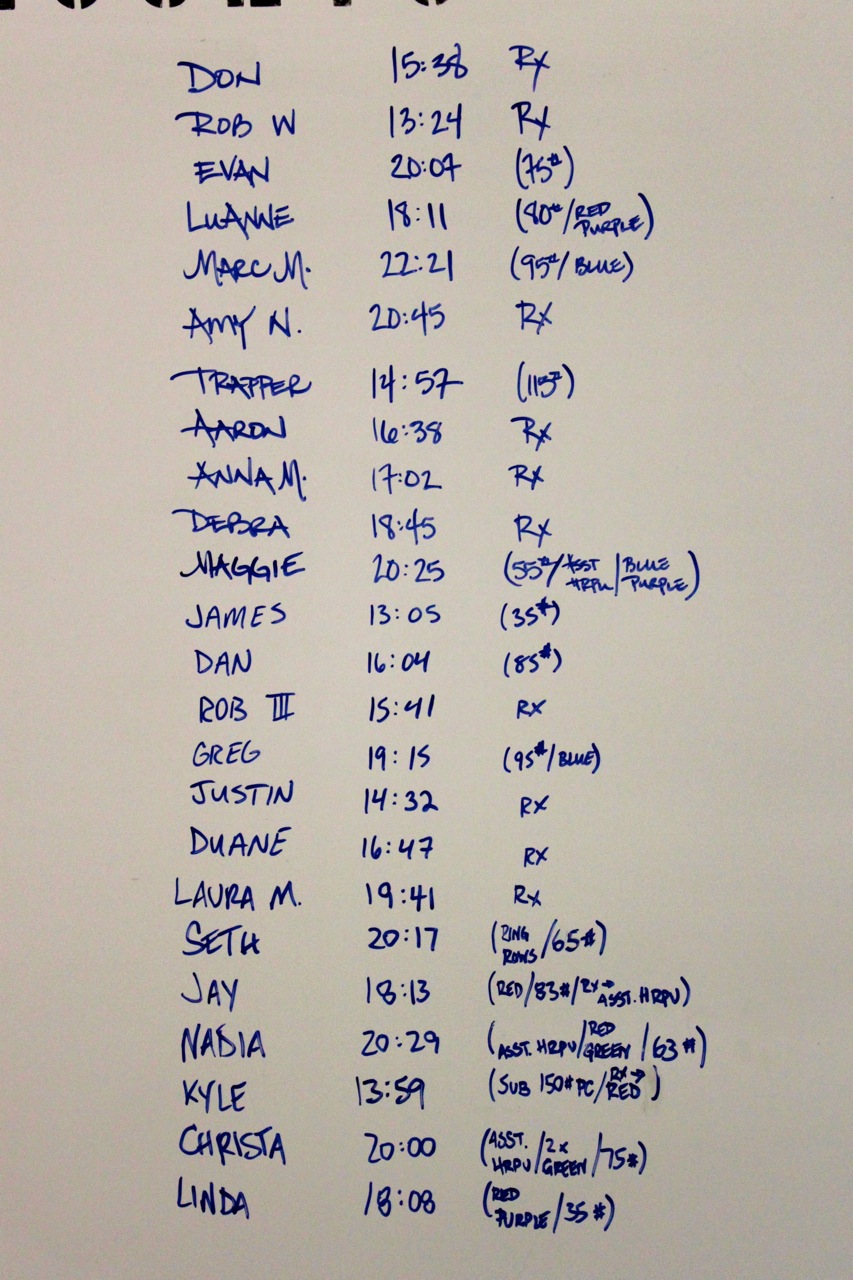 DON 15:38 Rx
ROB W 13:24 Rx
EVAN 20:07 (75#)
LUANNE 18:11 (80#/RED PURPLE)
MARC M. 22:21 (95#/BLUE)
AMY N. 20:45 Rx
TRAPPER 14:57 (115#)
AARON 16:38 Rx
ANNA M. 17:02 Rx
DEBRA 18:45 Rx
MAGGIE 20:25 (55#/ASST HRPU/BLUE PURPLE)
JAMES 13:05 (35#)
DAN 16:04 (85#)
ROB III 15:41 RX
GREG 19:15 (95#/BLUE)
JUSTIN 14:32 RX
DUANE 16:47 RX
LAURA M. 19:41 Rx
SETH 20:17 (RING ROWS/65#)
JAY 18:13 (RED/83#/RX→ASST. HRPU)
NADIA 20:29 (ASST. HRPU/RED GREEN/63#)
KYLE 13:59 (SUB 150# PC/RX→RED)
CHRISTA 20:00 (ASST. HRPU/2x GREEN/75#)
LINDA 18:08 (RED PURPLE/35#)